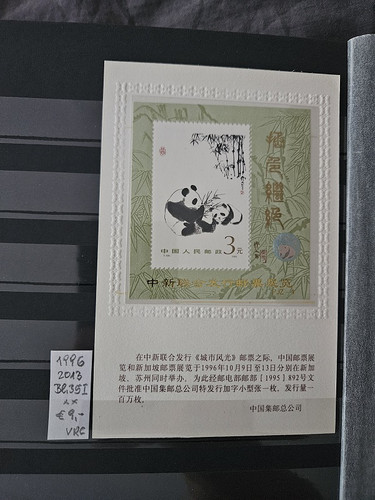 中国人民邮政
3元
中新联合发行邮票展览
在中新联合发行《城市风光》邮票之际，中国邮票展
览和新加坡邮票展览于1996年10月9日至13日分别在新加
坡、苏州同时举办。为此经邮电部邮部［1995］892号文
件批准中国集邮总公司特发行加字小型张一枚。发行量一
百万枚。
中国集邮总公司
1996
2013
Bl.35I
xx
€ 9,-
VRC